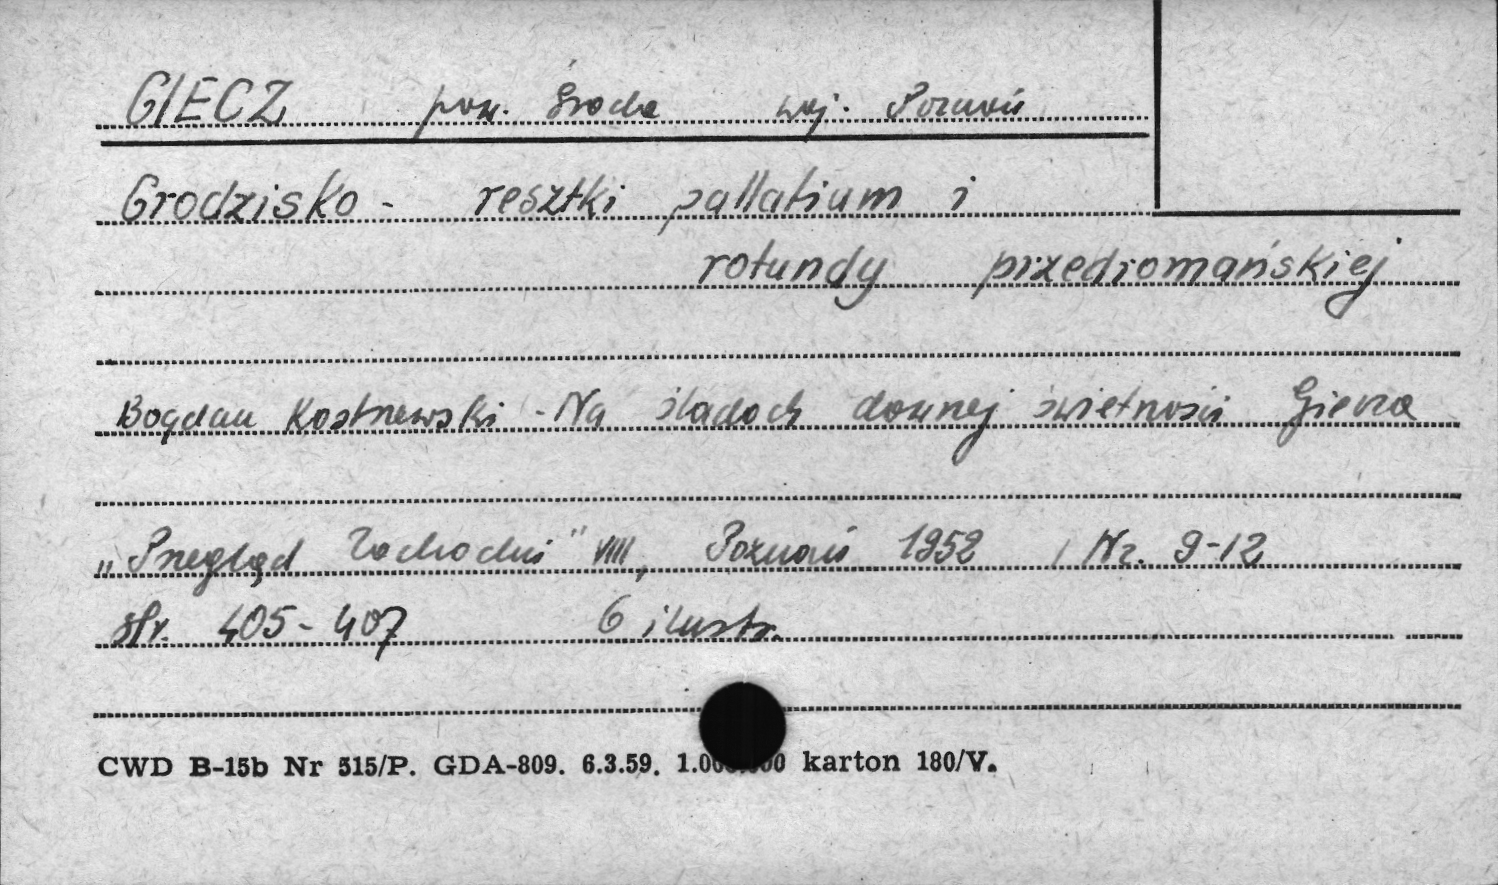 GIECZ pow. Środa woj. Poznań
Grodzisko - resztki pallatium i
rotundy przedromańskiej
Bogdan Kostrzewski - Na śladach dawnej świetności Giecza
„Przegląd Zachodni" VIII, Poznań 1952 / Nr. 9-12
str. 405-407 6 ilustr.
CWD B-15b Nr 515/P. GDA-809. 6.3.59. karton 180/V.